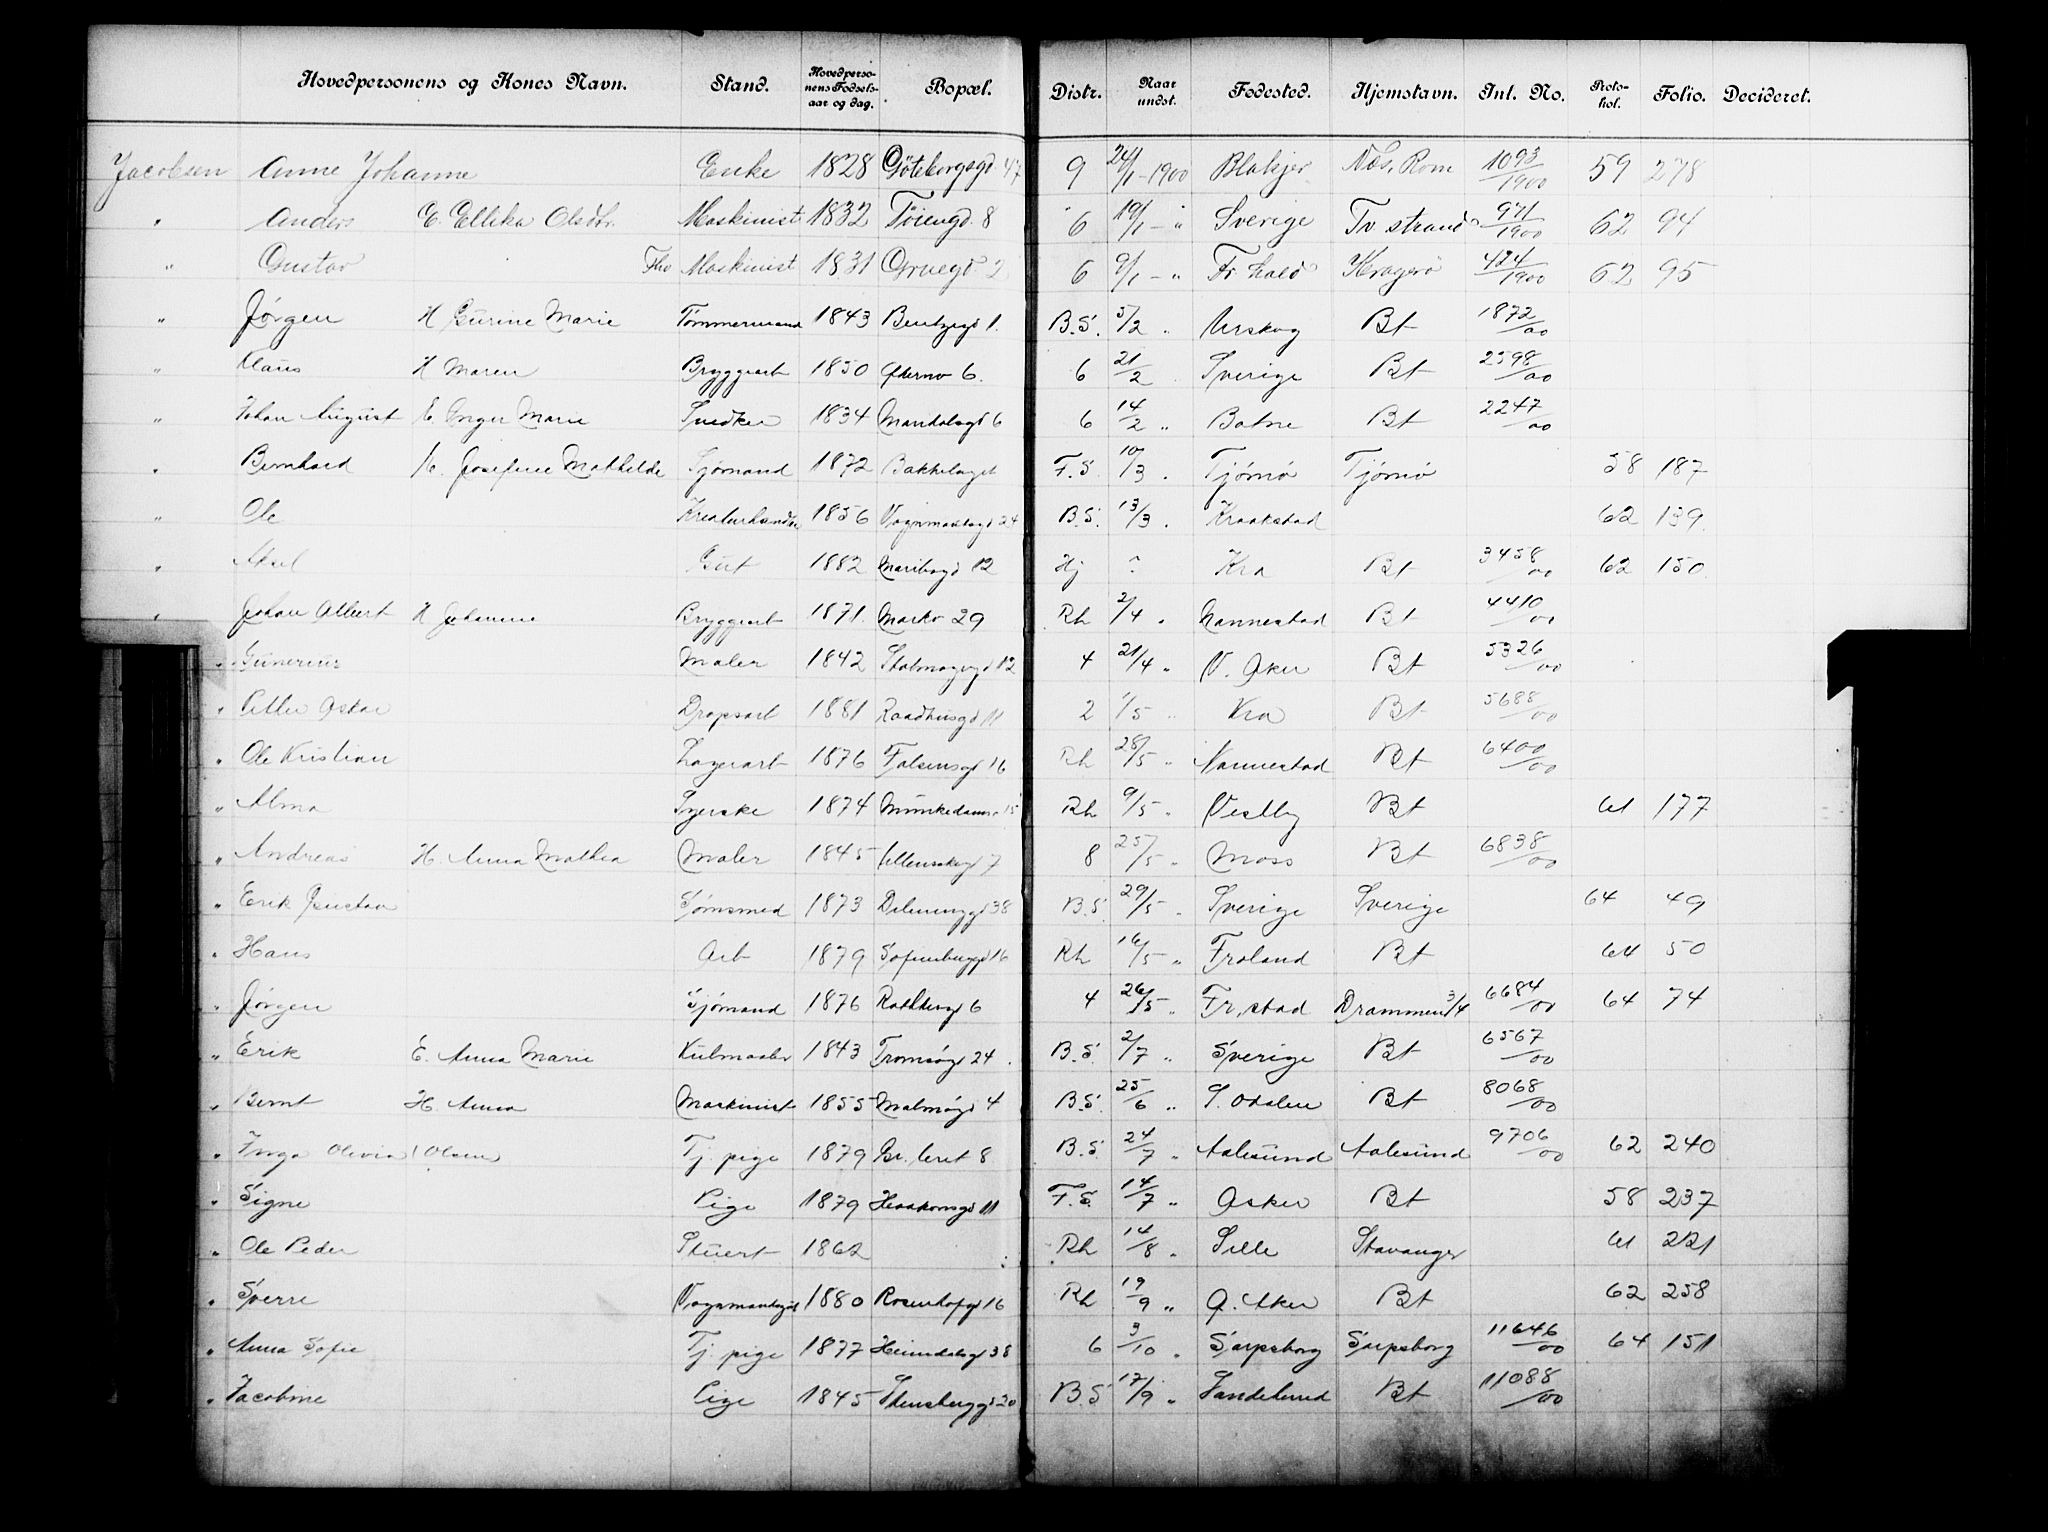 Hovedpersonens og Kones Navn. Stand. Hovedpersonens Fødselsaar og dag. Bopæl. Distr. Naar undst. Fødested. Hjemstavn. Int. No. Protokol. Folio. Decideret.
Jacobsen Anne Johanne Enke 1828 Göteborgsgd 47 9 24/1-1900 Blakjer Næs, Rom 1093/1900 59 278
" Anders E. Ellika Olsdtr. Maskinist 1832 Tøiengd 8 6 19/1 - " Sverige Tv strand 971/1900 62 94
" Gustav Fhv Maskinist 1831 Gruegd 2 6 9/1 - " Fr hald Kragerø 424/1900 62 95
" Jørgen H Gurine Marie Tømmermand 1843 Bentzegd 1. B.S. 5/2 " Urskog Bt 1872/00
" Klaus H Maren Bryggearb 1850 6. 6 21/2 " Sverige Bt 2598/00
" Johan August E. Inger Marie Snedker 1834 Maridalsgd 6 6 14/2 " Botne Bt 2247/00
" Bernhard H. Josefine Mathilde Sjømand 1872 Bakkehuget F.S. 10/3 " Tjømø Tjømø 58 187
" Ole Kreaturhandler 1856 Vognmandsgd 24 B.S. 13/3 " Kraakstad 62 139.
" Aksel Gut 1882 Maribogd 12 Hj ? Kra Bt 3458/00 62 150
" Johan Albert H Johanne Bryggearb 1871. Markv 29 Rh 2/4 " Nannestad Bt 4410/00
" Gunerius Maler 1842 Skolmagergd 12 4 21/4 " V. Aker Bt 5326/00
" Petter Oskar Dropsarb 1881 Raadhusgd 11 2 1/5 " Kra Bt 5688/00
" Ole Kristian Lagerarb 1876 Falsensgd 16 Rh 28/5 " Nannestad Bt 6400/00
" Alma Syerske 1874 Munkedamsv 15 Rh 9/5 " Vestby Bt 61 177
" Andreas H. Anna Mathea Maler 1845 Ullensakergd 7 8 25/5 " Moss Bt 6838/00
" Erik Gustav Jernsmed 1873 Delenenggd 38 B.S. 29/5 " Sverige Sverige 64 49
" Hans Arb 1879 Sofienberggd 16 Rh 16/5 " Froland Bt 64 50
" Jørgen Sjømand 1876 Rathkesgd 6 4 26/5 " Fr. stad Drammen 3/4 6684/00 64 74
" Erik E. Anna Marie Kulmaaler 1843 Tromsøgd 24. B.S. 2/7 " Sverige Bt 6567/00
" Bernt H. Anna Maskinist 1855 Malmøgd 4 B.S. 25/6 " S. Odalen Bt 8068/00
" Inga Olivia (Olsen Tj. pige 1879 Gr. leret 8 B.S. 24/7 " Aalesund Aalesund 9706/00 62 240
" Signe Pige 1879 Haakonsgd 11 F.S. 14/7 " Asker Bt 58 237
" Ole Peder Stuert 1862 Rh 14/8 " Selle Stavanger 61 221
" Sverre Vognmandsgut 1880 Rosenhofgd 16 Rh 19/9 " Ø. Aker Bt 62 258
" Anna Sofie Tj. pige 1877 Heimdalsgd 38 6 3/10 " Sarpsborg Sarpsborg 11646/00 64 151
" Jacobine Pige 1845 Stensberggd 20 B.S 17/9 " Sandelund Bt 11088/00